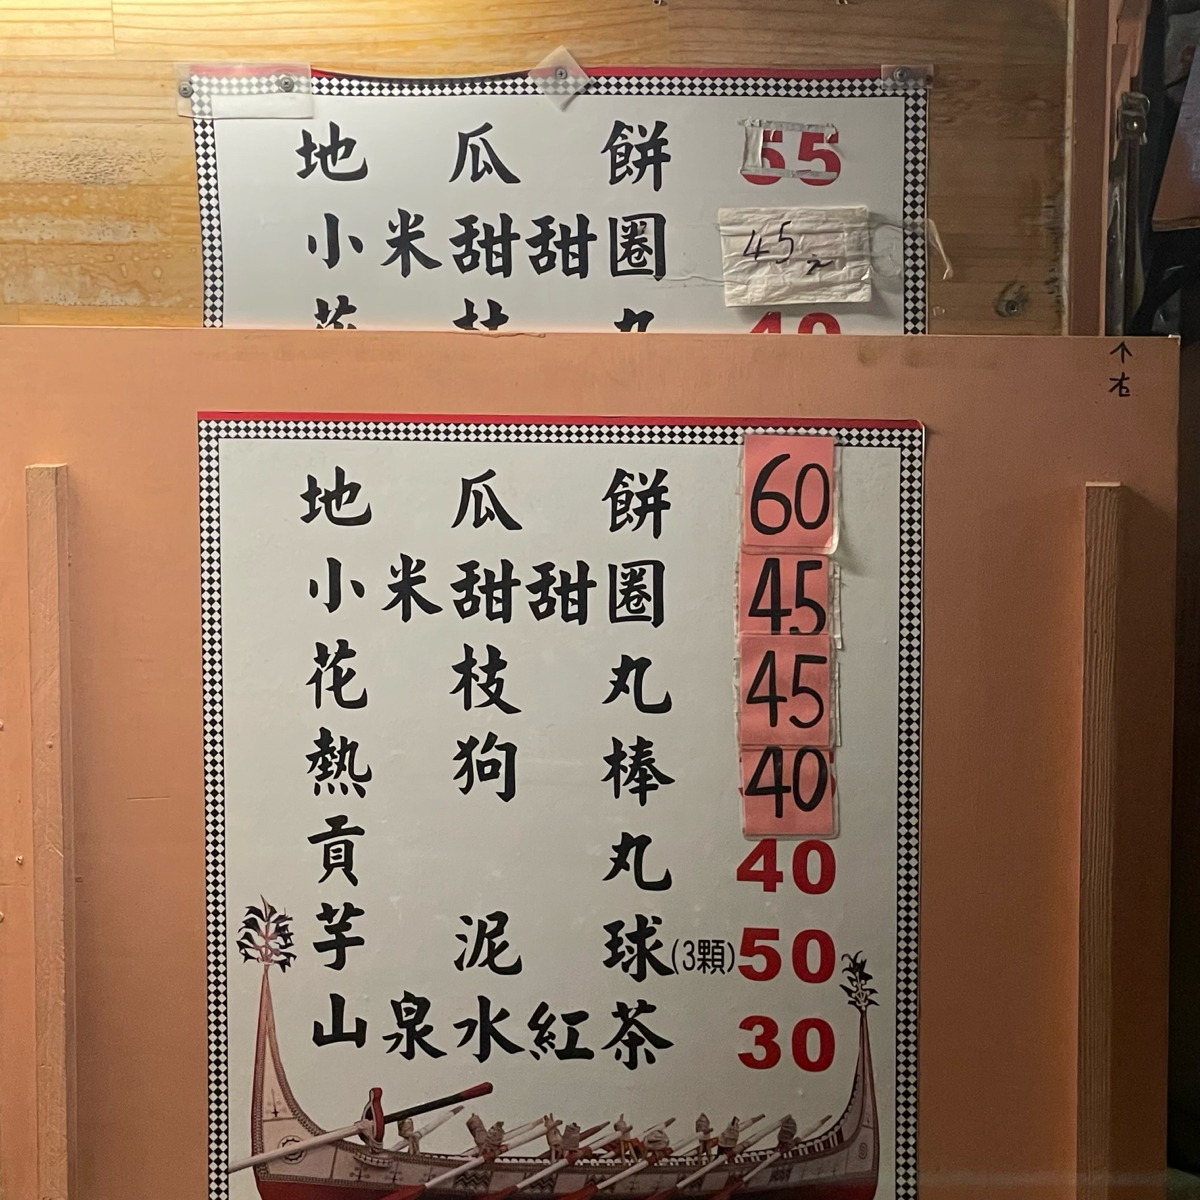 地瓜餅 55
小米甜甜圈 45元
花枝丸 40
↑
右
地瓜餅 60
小米甜甜圈 45
花枝丸 45
熱狗棒 40
貢丸 40
芋泥球(3顆) 50
山泉水紅茶 30